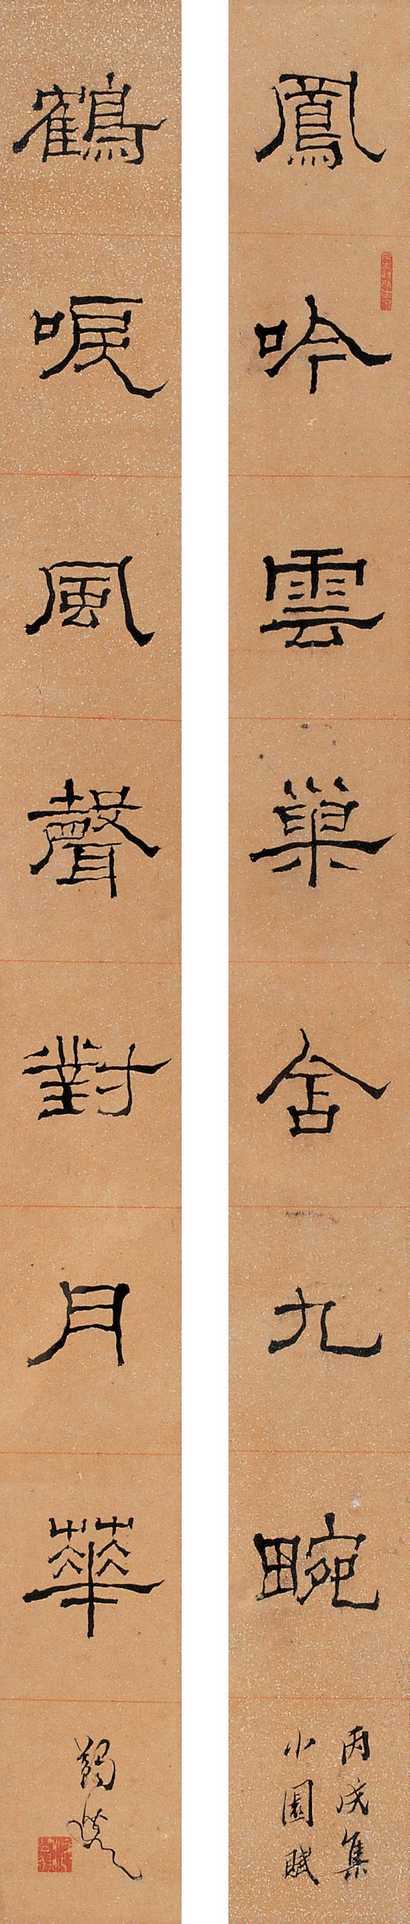 鳳吟雲巢舍九畹
丙戌集
小園賦
鶴唳風聲對月華
蠲叟